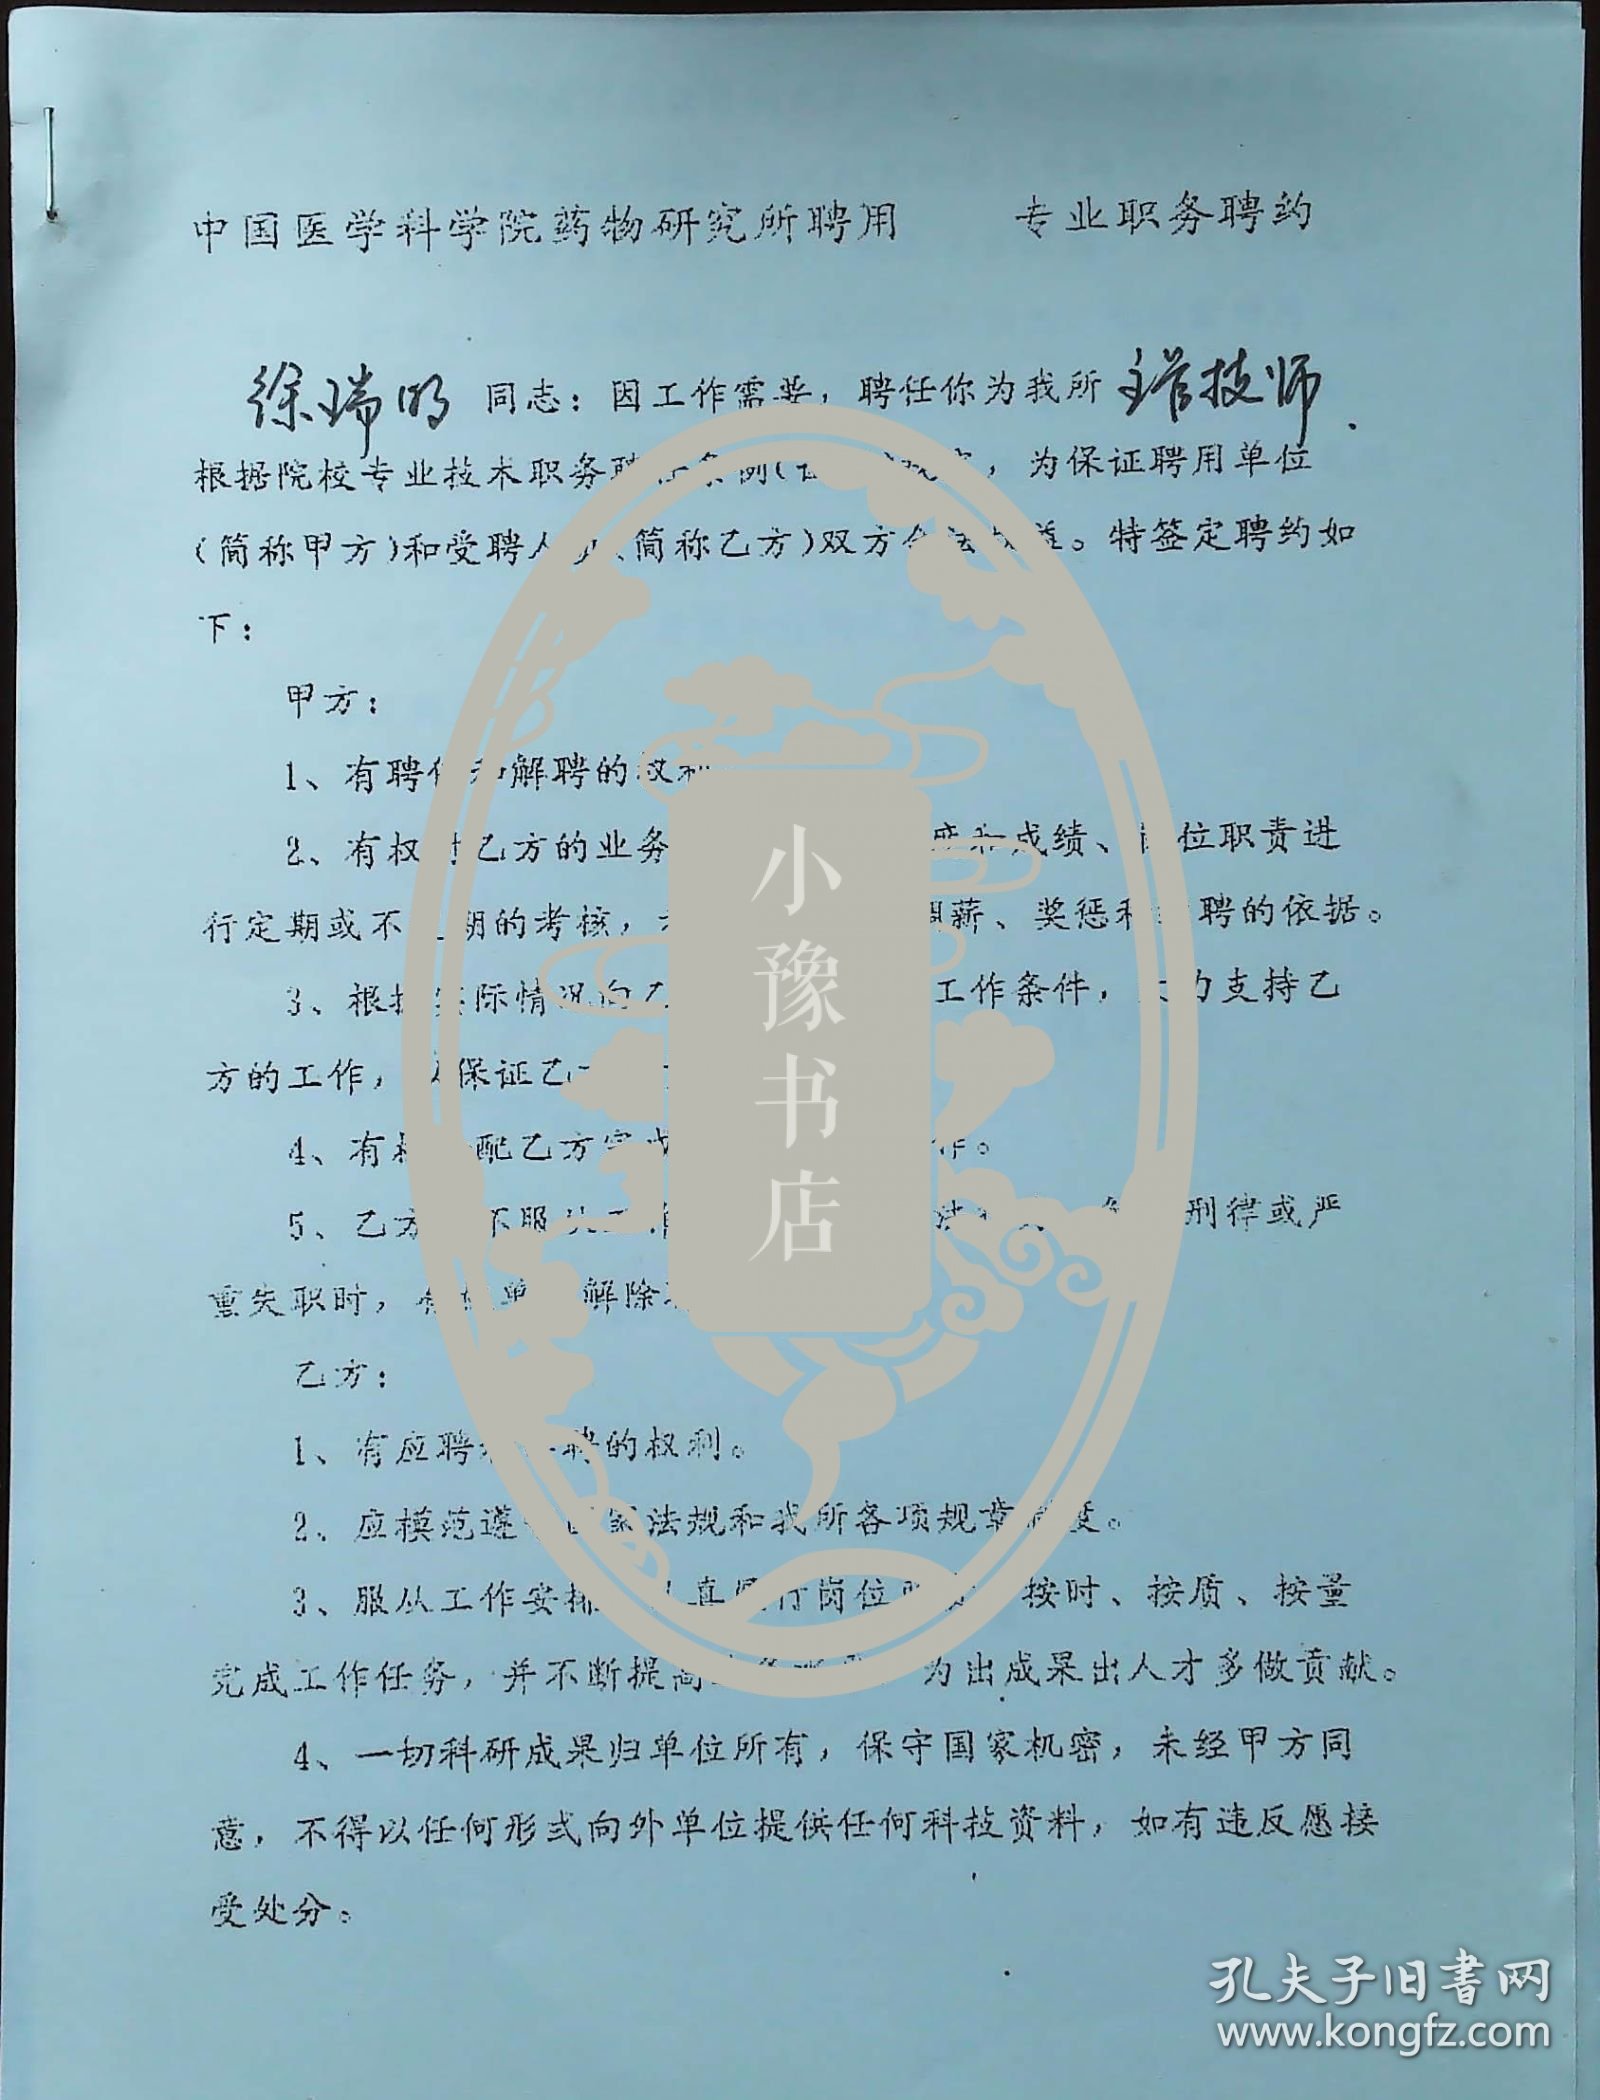 中国医学科学院药物研究所聘用 专业职务聘约
徐瑞明 同志：因工作需要，聘任你为我所 主管技师.
根据院校专业技术职务聘 例( ，为保证聘用单位
(简称甲方)和受聘人 简称乙方)双方合法 益。特签定聘约如
下：
甲方：
1、有聘任和解聘的权利
2、有权对乙方的业务 度和成绩、岗位职责进
行定期或不定期的考核， 调薪、奖惩和 聘的依据。
3、根据实际情况向乙 工作条件，大力支持乙
方的工作，以保证乙
4、有权 配乙方完成 作。
5、乙方 不服从工 法 刑律或严
重失职时，有权单 解除
乙方：
1、有应聘和 聘的权利。
2、应模范遵守国家法规和我所各项规章制度。
3、服从工作安排 认真履行岗位职 按时、按质、按量
完成工作任务，并不断提高业务水平 为出成果出人才多做贡献。
4、一切科研成果归单位所有，保守国家机密，未经甲方同
意，不得以任何形式向外单位提供任何科技资料，如有违反愿接
受处分。
小豫书店
孔夫子旧书网
www.kongfz.com